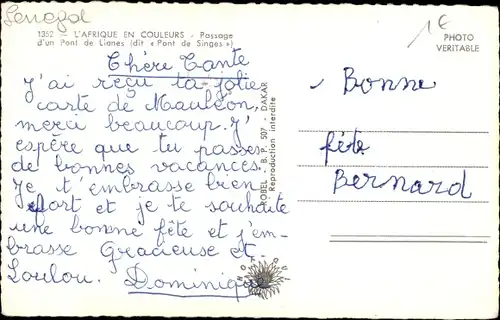 Senegal
1352 — L'AFRIQUE EN COULEURS - Passage
d'un Pont de Lianes (dit « Pont de Singes »)
1€
PHOTO
VERITABLE
Chère Tante
J'ai reçu ta jolie
carte de Mauléon,
merci beaucoup. J'
espère que tu passes
de bonnes vacances.
Je t'embrasse bien
fort et je te souhaite
une bonne fête et j'em-
brasse Gracieuse et
Loulou. Dominique
HOBEL - B. P. 507 - DAKAR
Reproduction interdite
Bonne
fête
Bernard